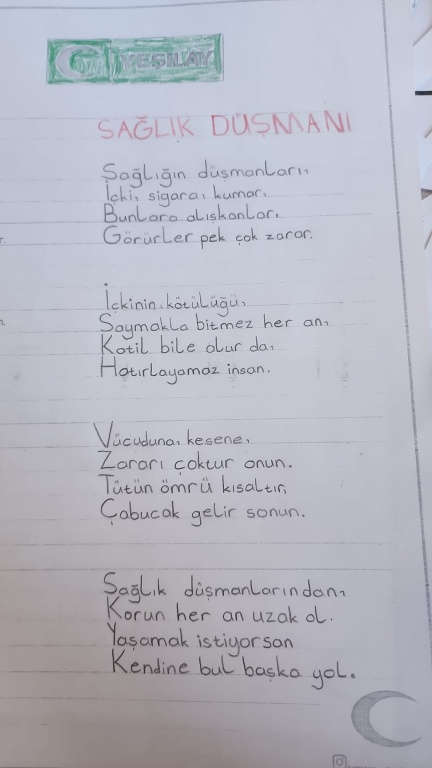 YEŞİLAY
SAĞLIK DÜŞMANI
Sağlığın düşmanları,
İçki, sigara, kumar,
Bunlara alışkanlar,
Görürler pek çok zarar.
İçkinin kötülüğü,
Saymakla bitmez her an,
Katil bile olur da,
Hatırlayamaz insan.
Vücuduna, kesene,
Zararı çoktur onun.
Tütün ömrü kısaltır,
Çabucak gelir sonun.
Sağlık düşmanlarından,
Korun her an uzak ol.
Yaşamak istiyorsan
Kendine bul başka yol.